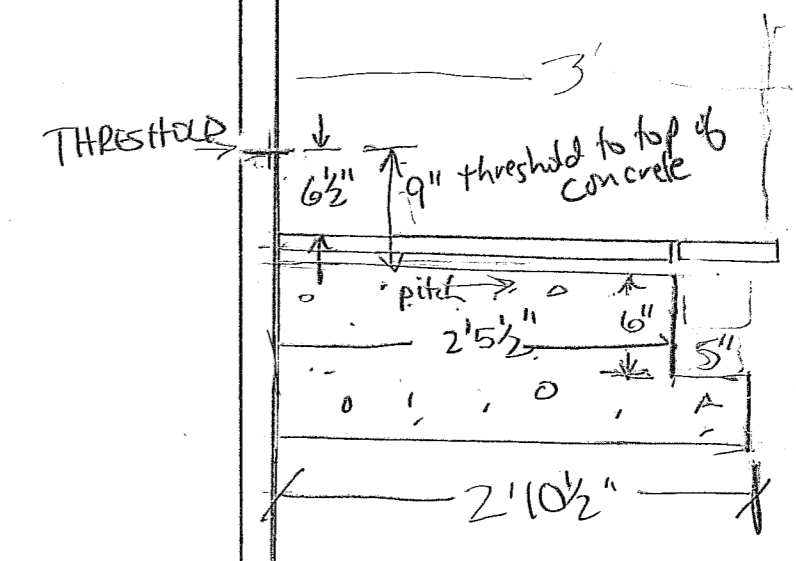 3'
THRESHOLD
6½"
9" threshold to top of
concrete
pitch
2'5½"
6"
5"
2'10½"